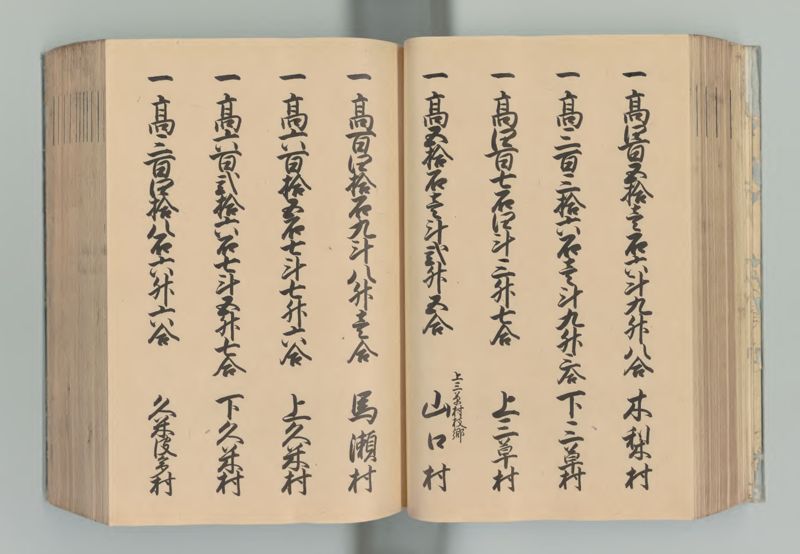 一 高四百五拾壱石六斗九升八合 木梨村
一 高三百三拾六石壱斗九升三合 下三草村
一 高四百七石四斗三升七合 上三草村
一 高五拾石壱斗弐升五合 上三草村枝郷 山口村
一 高百四拾石九斗八升壱合 馬瀬村
一 高六百拾五石七斗七升六合 上久米村
一 高六百弐拾六石七斗五升七合 下久米村
一 高三百四拾八石六升六合 久米 村